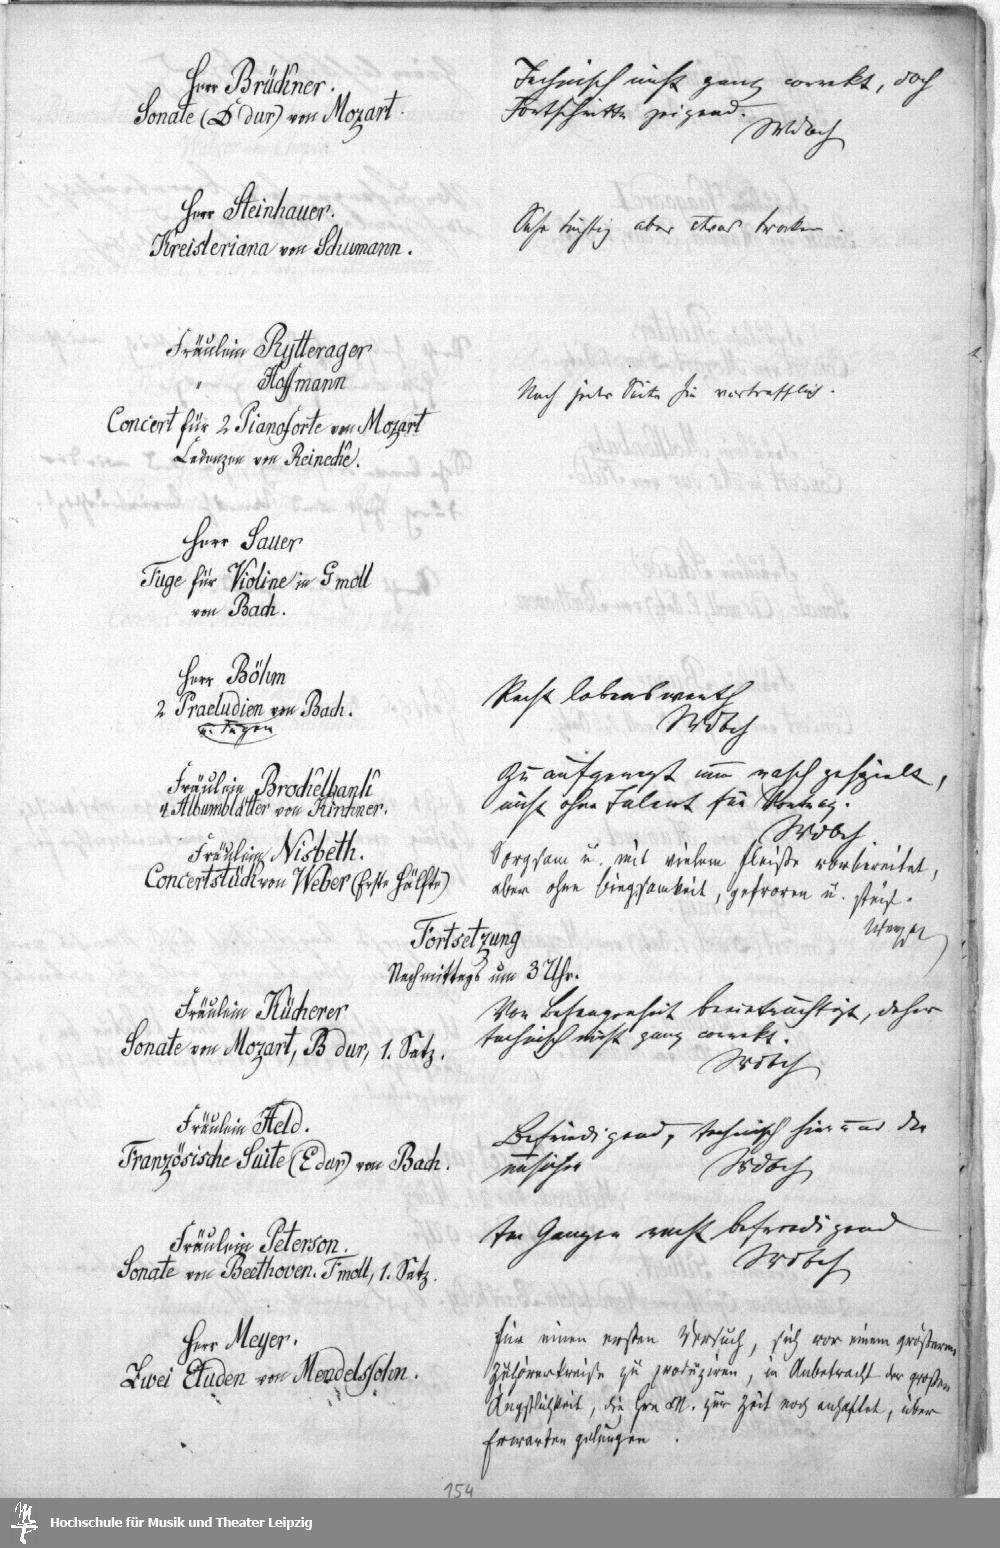 Herr Brückner.
Sonate (D dur) von Mozart.
Technisch nicht ganz correkt, doch
Fortschritte zeigend.
Herr Steinhauer.
Kreisleriana von Schumann.
Sehr tüchtig aber etwas trocken.
Fräulein Rytterager
" Hoffmann
Concert für 2 Pianoforte von Mozart
Cadenzen von Reinecke.
Nach jeder Seite hin vortrefflich.
Herr Sauer
Fuge für Violine in G moll
von Bach.
Herr Böhm
2 Praeludien von Bach.
u. Fugen
Recht lobenswerth
Fräulein
4 Albumblätter von Kirchner.
Zu aufgeregt und rasch gespielt,
nicht ohne Talent für Vortrag.
Fräulein Nisbeth.
Concertstück von Weber (Erste Hälfte)
Sorgsam u. mit vielem Fleiße vorbereitet,
aber ohne Biegsamkeit, gefroren u. steif.
Fortsetzung
Nachmittags um 3 Uhr.
Fräulein Kücherer
Sonate von Mozart, B dur, 1. Satz.
Von Befangenheit beeinträchtigt, daher
technisch nicht ganz correkt.
Fräulein Held.
Französische Suite (E dur) von Bach.
Befriedigend, technisch hier und da
unsicher
Fräulein Peterson.
Sonate von Beethoven. F moll, 1. Satz.
Im Ganzen recht befriedigend
Herr Meyer.
Zwei Etuden von Mendelssohn.
Für einen ersten Versuch, sich vor einem größeren
Zuhörerkreise zu produziren, in Anbetracht der großen
Ängstlichkeit, die Hrn M. zur Zeit noch anhaftet, über
Erwarten gelungen.
154
Hochschule für Musik und Theater Leipzig